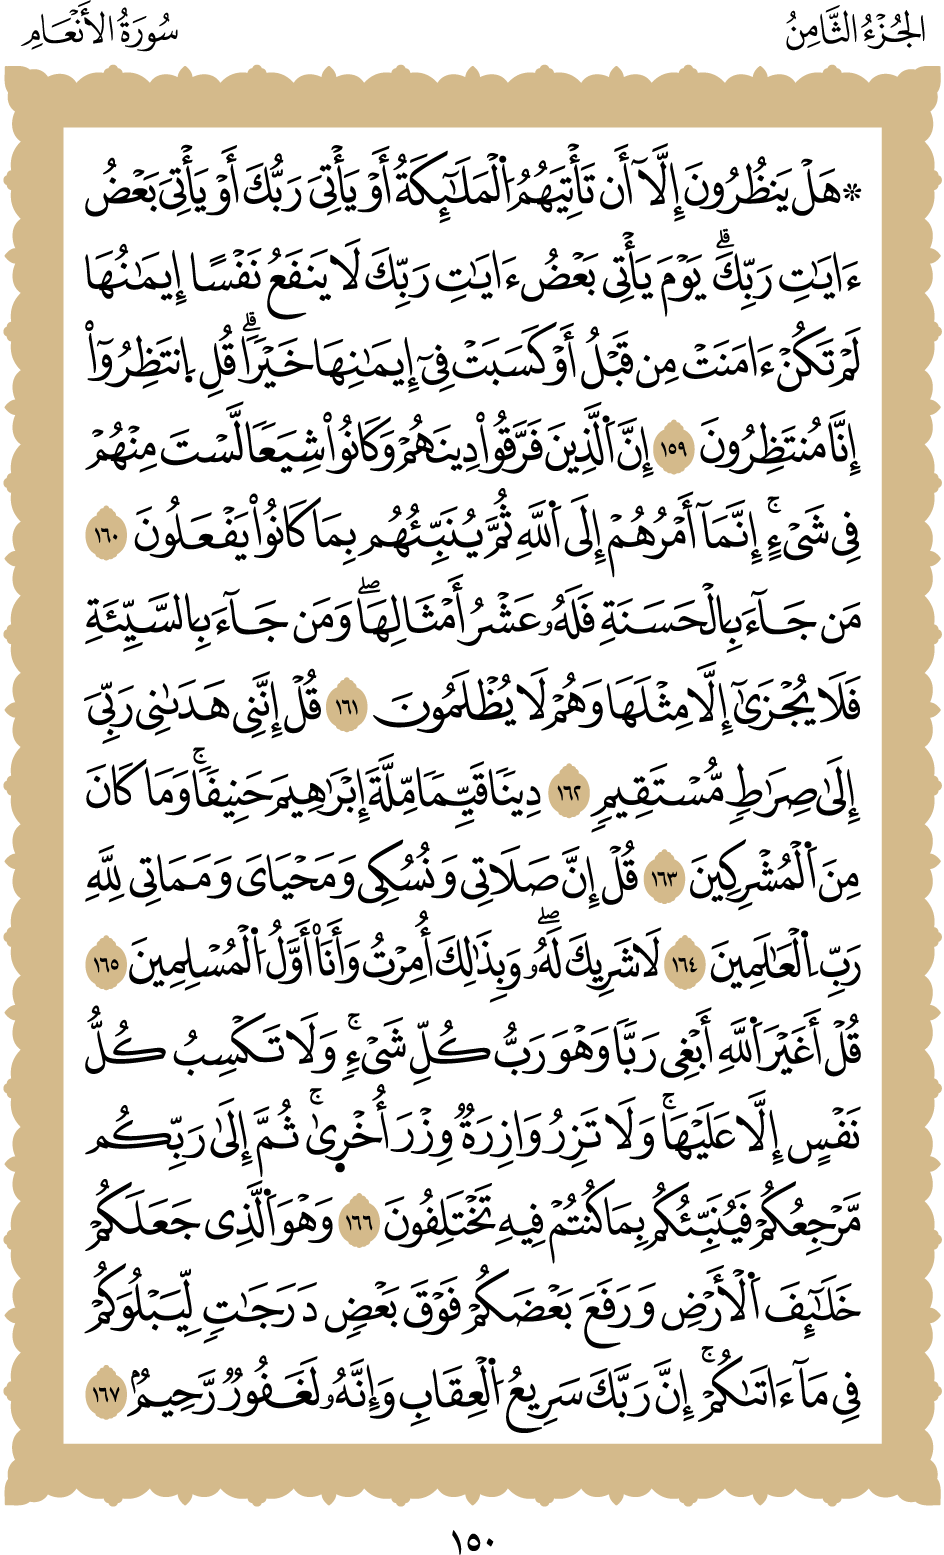 الجُزْءُ الثَّامِنُ
سُورَةُ الأَنْعَامِ
۞ هَلْ يَنظُرُونَ إِلَّآ أَن تَأْتِيَهُمُ ٱلْمَلَٰٓئِكَةُ أَوْ يَأْتِىَ رَبُّكَ أَوْ يَأْتِىَ بَعْضُ
ءَايَٰتِ رَبِّكَۗ يَوْمَ يَأْتِى بَعْضُ ءَايَٰتِ رَبِّكَ لَا يَنفَعُ نَفْسًا إِيمَٰنُهَا
لَمْ تَكُنْ ءَامَنَتْ مِن قَبْلُ أَوْ كَسَبَتْ فِىٓ إِيمَٰنِهَا خَيْرًاۗ قُلِ ٱنتَظِرُوٓا۟
إِنَّا مُنتَظِرُونَ ١٥٩ إِنَّ ٱلَّذِينَ فَرَّقُوا۟ دِينَهُمْ وَكَانُوا۟ شِيَعًا لَّسْتَ مِنْهُمْ
فِى شَىْءٍۚ إِنَّمَآ أَمْرُهُمْ إِلَى ٱللَّهِ ثُمَّ يُنَبِّئُهُم بِمَا كَانُوا۟ يَفْعَلُونَ ١٦٠
مَن جَآءَ بِالْحَسَنَةِ فَلَهُۥ عَشْرُ أَمْثَالِهَاۖ وَمَن جَآءَ بِالسَّيِّئَةِ
فَلَا يُجْزَىٰٓ إِلَّا مِثْلَهَا وَهُمْ لَا يُظْلَمُونَ ١٦١ قُلْ إِنَّنِى هَدَىٰنِى رَبِّىَ
إِلَىٰ صِرَٰطٍ مُّسْتَقِيمٍ ١٦٢ دِينًا قَيِّمًا مِّلَّةَ إِبْرَٰهِيمَ حَنِيفًاۚ وَمَا كَانَ
مِنَ ٱلْمُشْرِكِينَ ١٦٣ قُلْ إِنَّ صَلَاتِى وَنُسُكِى وَمَحْيَاىَ وَمَمَاتِى لِلَّهِ
رَبِّ ٱلْعَٰلَمِينَ ١٦٤ لَا شَرِيكَ لَهُۥۖ وَبِذَٰلِكَ أُمِرْتُ وَأَنَا۠ أَوَّلُ ٱلْمُسْلِمِينَ ١٦٥
قُلْ أَغَيْرَ ٱللَّهِ أَبْغِى رَبًّا وَهْوَ رَبُّ كُلِّ شَىْءٍۚ وَلَا تَكْسِبُ كُلُّ
نَفْسٍ إِلَّا عَلَيْهَاۚ وَلَا تَزِرُ وَازِرَةٌ وِزْرَ أُخْرٜىٰۚ ثُمَّ إِلَىٰ رَبِّكُم
مَّرْجِعُكُمْ فَيُنَبِّئُكُم بِمَا كُنتُمْ فِيهِ تَخْتَلِفُونَ ١٦٦ وَهْوَ ٱلَّذِى جَعَلَكُمْ
خَلَٰٓئِفَ ٱلْأَرْضِ وَرَفَعَ بَعْضَكُمْ فَوْقَ بَعْضٍ دَرَجَٰتٍ لِّيَبْلُوَكُمْ
فِى مَآ ءَاتَىٰكُمْۚ إِنَّ رَبَّكَ سَرِيعُ ٱلْعِقَابِ وَإِنَّهُۥ لَغَفُورٌ رَّحِيمٌۢ ١٦٧
١٥٠